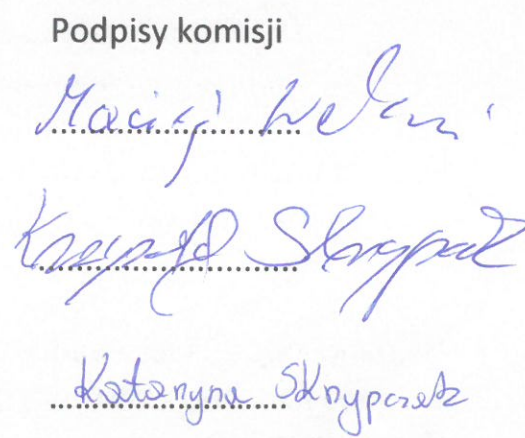 Podpisy komisji
Maciej
Krzysztof Skrzypek
Katarzyna Skrzypczak